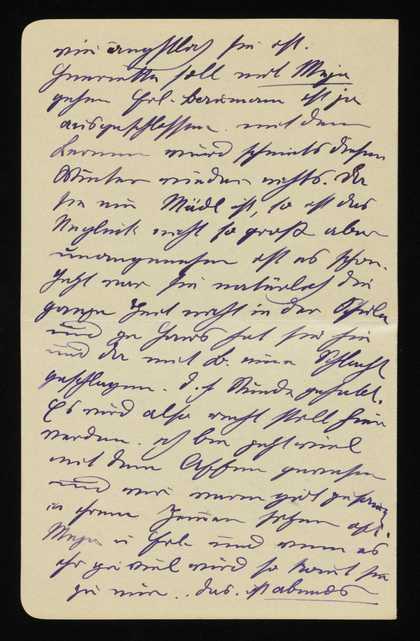 wie ängstlich sie ist.
Henriette soll mit Maja
gehen Frl. Baumann ist ja
ausgeschlossen. mit dem
Lernen wird scheints diesen
Winter wieder nichts. Da
sie ein Mädl ist, so ist das
Unglück nicht so groß aber
unangenehm ist es schon.
Jetzt war sie natürlich die
ganze Zeit nicht in der Schule
und zu Haus hat sie hie
und da mit B. eine Schlacht
geschlagen. d. h. Stunde gehabt.
Es wird also recht still hier
werden. ich bin jetzt viel
mit dem Affen gewesen
und wir waren ganz
in ihrem Zimmer
Maja u Frl. und wenn es
ihr zu viel wird so kommt sie
zu mir.. das ist abends